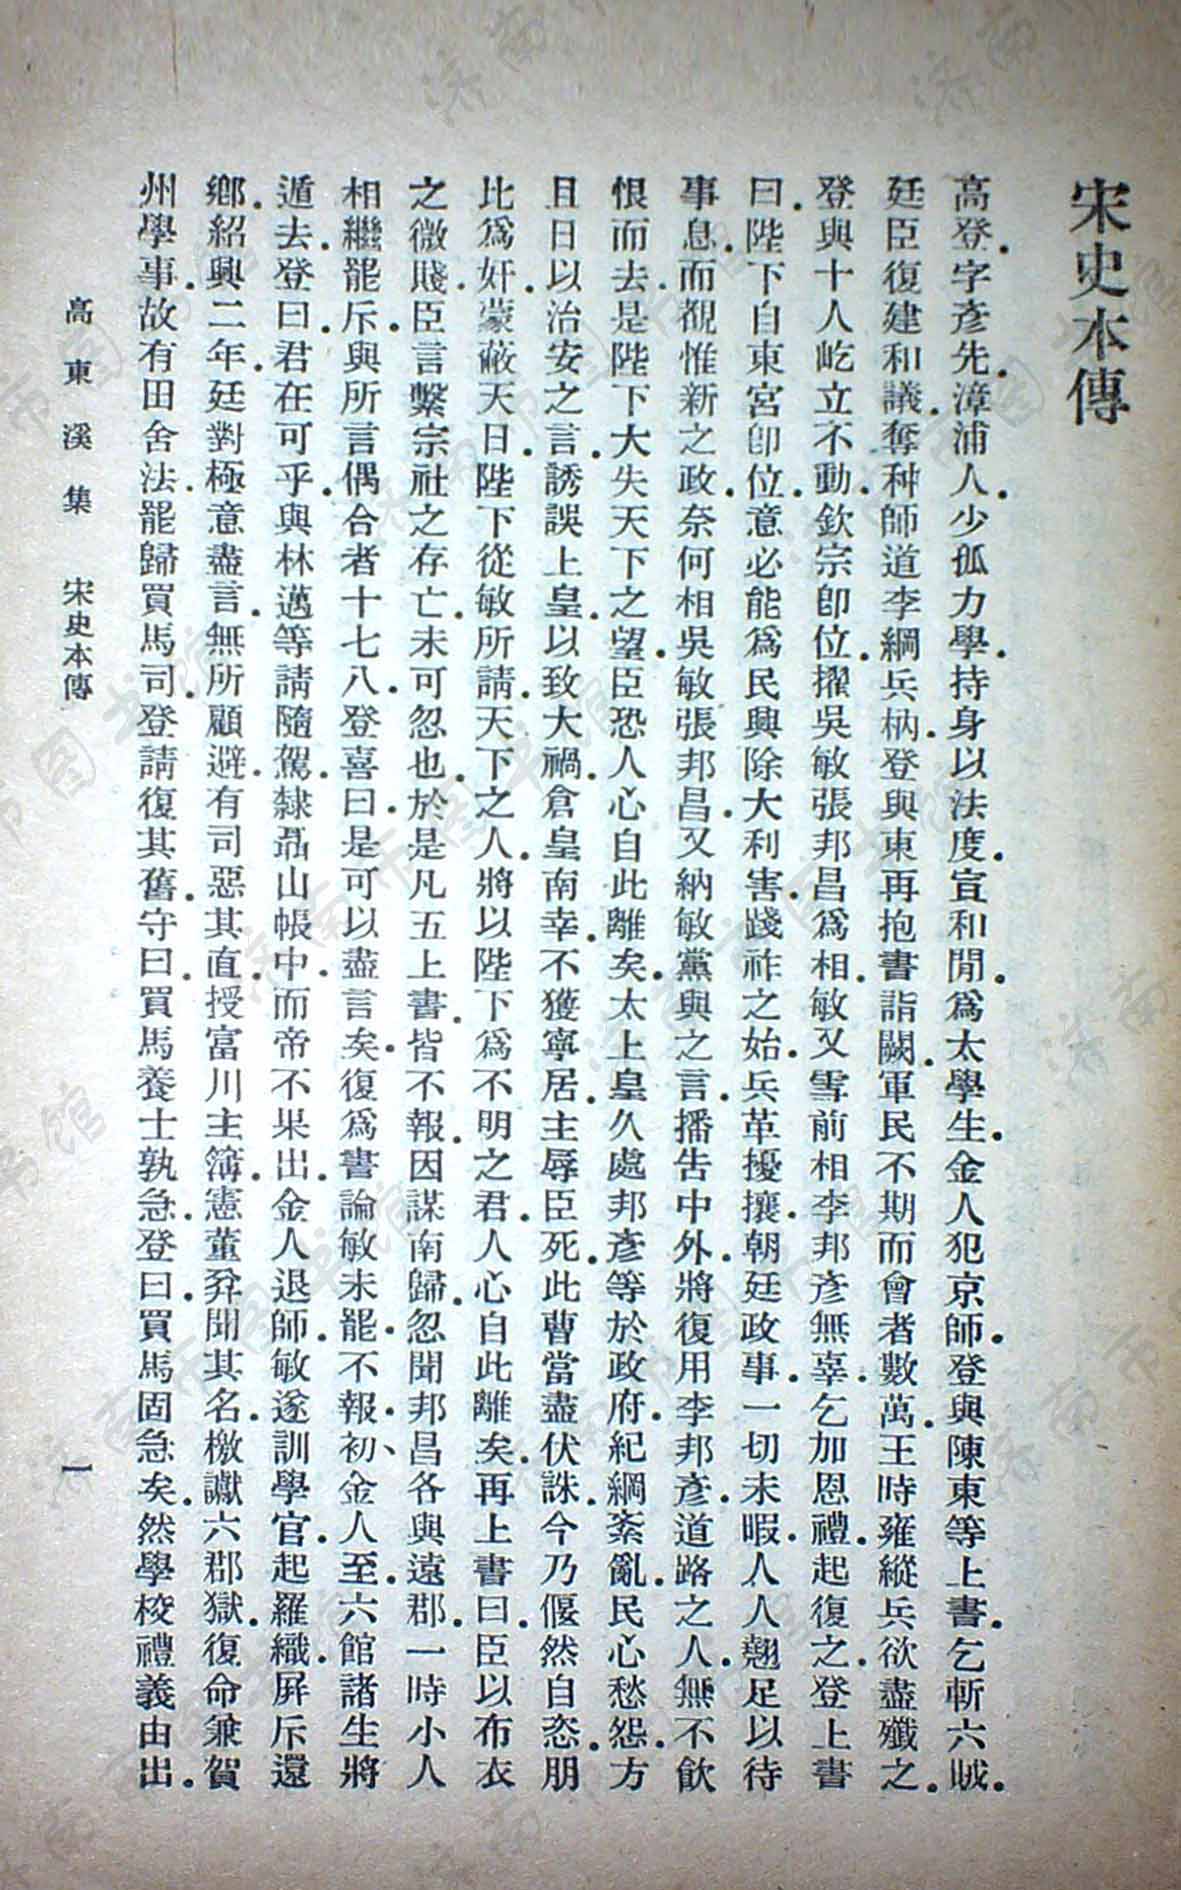 宋史本傳
高登.字彥先.漳浦人.少孤力學.持身以法度.宣和閒.爲太學生.金人犯京師.登與陳東等上書.乞斬六賊.
廷臣復建和議.奪种師道李綱兵柄.登與東再抱書詣闕.軍民不期而會者數萬.王時雍縱兵欲盡殲之.
登與十人屹立不動.欽宗卽位.擢吳敏張邦昌爲相.敏又雪前相李邦彥無辜.乞加恩禮.起復之.登上書
曰.陛下自東宮卽位.意必能爲民興除大利害.踐祚之始.兵革擾攘.朝廷政事.一切未暇.人人翹足以待
事息.而觀惟新之政.奈何相吳敏張邦昌.又納敏黨與之言.播告中外.將復用李邦彥.道路之人.無不飮
恨而去.是陛下大失天下之望.臣恐人心自此離矣.太上皇久處邦彥等於政府.紀綱紊亂.民心愁怨.方
且日以治安之言.誘誤上皇.以致大禍.倉皇南幸.不獲寧居.主辱臣死.此曹當盡伏誅.今乃偃然自恣.朋
比爲奸.蒙蔽天日.陛下從敏所請.天下之人.將以陛下爲不明之君.人心自此離矣.再上書曰.臣以布衣
之微賤.臣言繫宗社之存亡.未可忽也.於是凡五上書.皆不報.因謀南歸.忽聞邦昌各與遠郡.一時小人
相繼罷斥.與所言偶合者十七八.登喜曰.是可以盡言矣.復爲書論敏未罷.不報.初、金人至.六館諸生將
遁去.登曰.君在可乎.與林邁等請隨駕.隸聶山帳中.而帝不果出.金人退師.敏遂訓學官.起羅織.屏斥還
鄕.紹興二年.廷對極意盡言.無所顧避.有司惡其直.授富川主簿.憲董弅聞其名.檄讞六郡獄.復命兼賀
州學事.故有田舍法.罷歸買馬司.登請復其舊.守曰.買馬養士孰急.登曰.買馬固急矣.然學校禮義由出.
高東溪集 宋史本傳 一